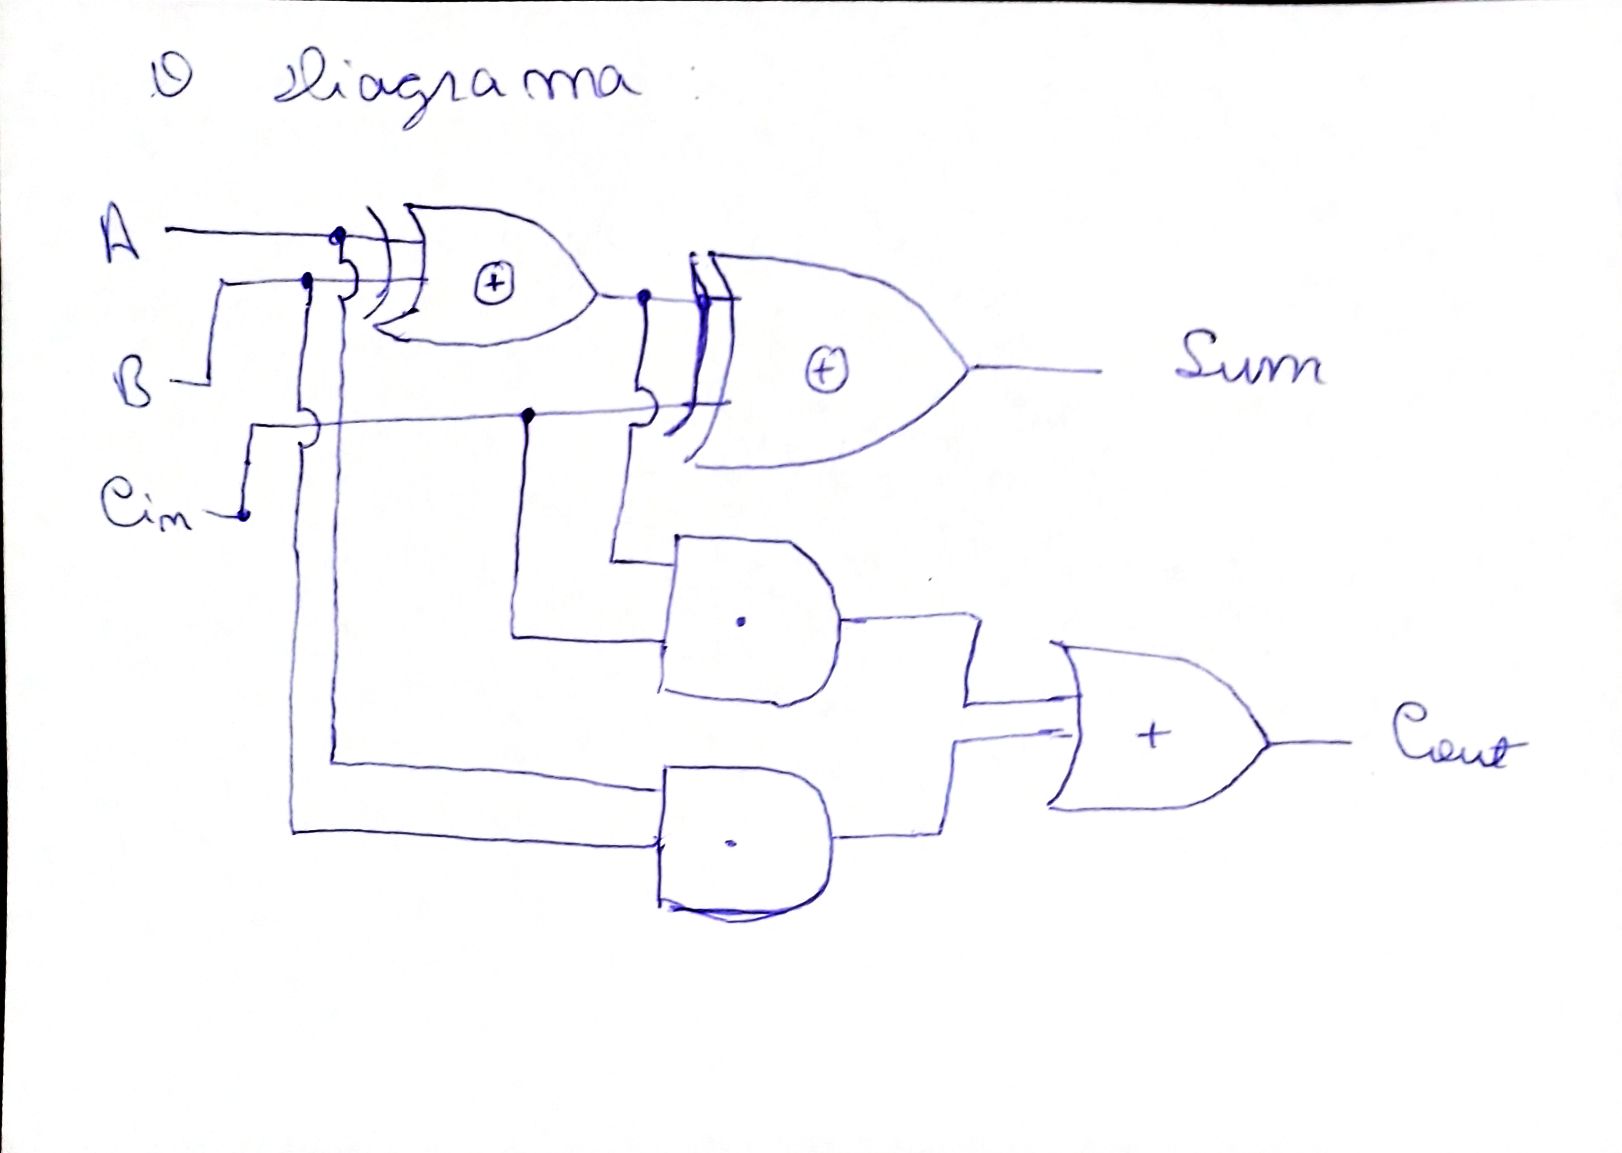 O diagrama:
A
B
Cin
Sum
Cout